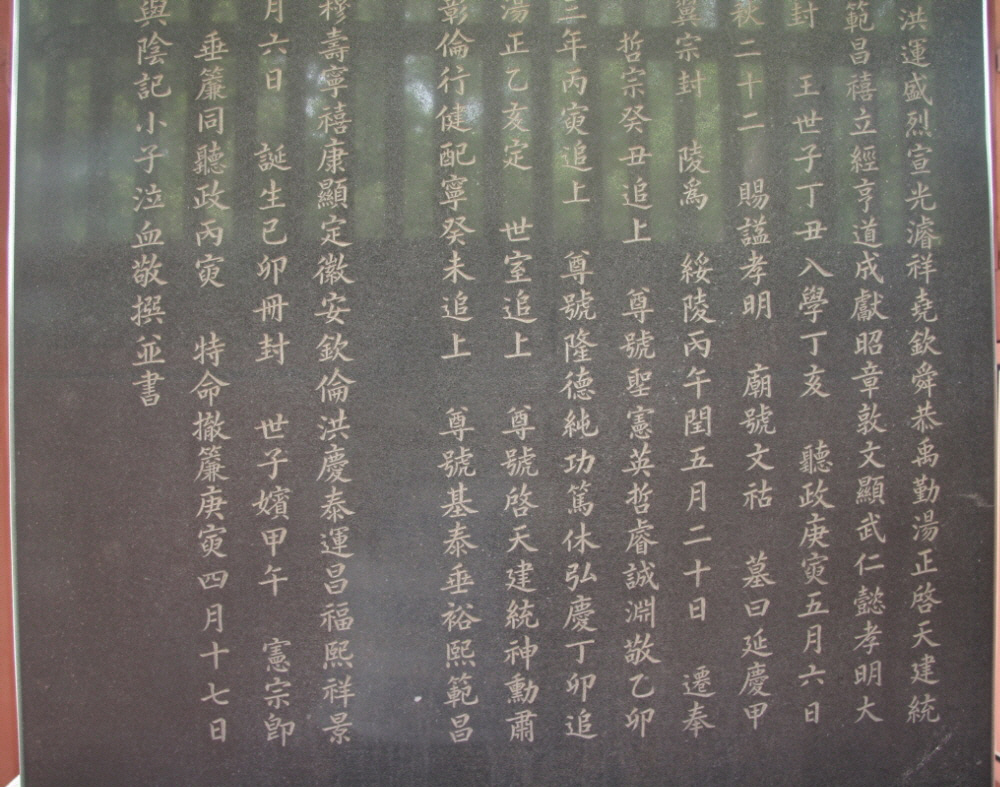 洪運盛烈宣光濬祥堯欽舜恭禹勤湯正啓天建統
範昌禧立經亨道成獻昭章敦文顯武仁懿孝明大
封 王世子丁丑入學丁亥 聽政庚寅五月六日
秋二十二 賜謚孝明 廟號文祜 墓曰延慶甲
冀宗封 陵爲 綏陵丙午閏五月二十日 遷奉
哲宗癸丑追上 尊號聖憲英哲睿誠淵敬乙卯
三年丙寅追上 尊號隆德純功篤休弘慶丁卯追
湯正乙亥定 世室追上 尊號啓天建統神勳肅
彰倫行健配寧癸未追上 尊號基泰垂裕熙範昌
穆壽寧禧康顯定徽安欽倫洪慶泰運昌福熙祥景
月六日 誕生己卯冊封 世子嬪甲午 憲宗卽
垂簾同聽政丙寅 特命撤簾庚寅四月十七日
與陰記小子泣血敬撰並書